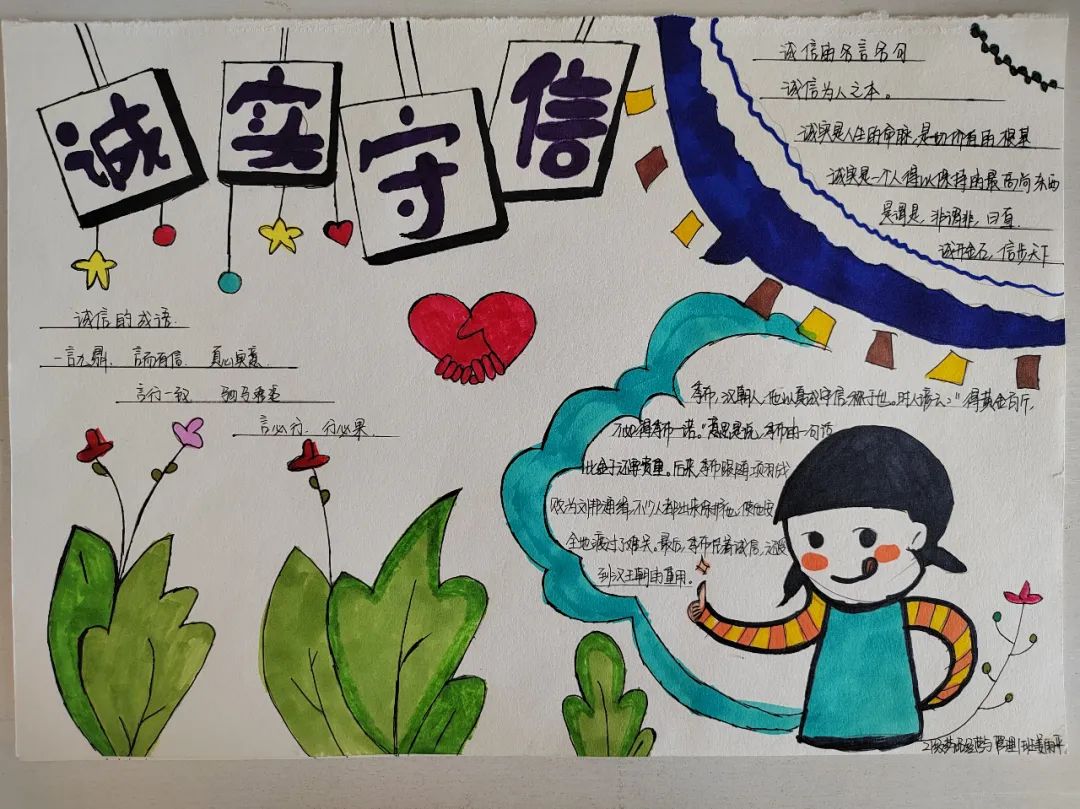 诚实守信
诚信的名言名句
诚信为人之本。
诚实是人生的命脉,是一切价值的根基
诚实是一个人得以保持的最高尚东西
是谓是,非谓非,曰直.
诚开金石,信步天下
诚信的成语.
一言九鼎. 言而有信. 真心实意.
言行一致 驷马难追
言必行. 行必果.
季布,汉朝人,他以真诚守信称于世。时人谚云:"得黄金百斤,
不如得季布一诺。"意思是说,季布的一句话
比金子还要贵重。后来,季布跟随项羽战
败为刘邦通缉,不少人都出来保护他,使他安
全地渡过了难关。最后,季布凭着诚信,还受
到汉王朝的重用。
经营与管理1班